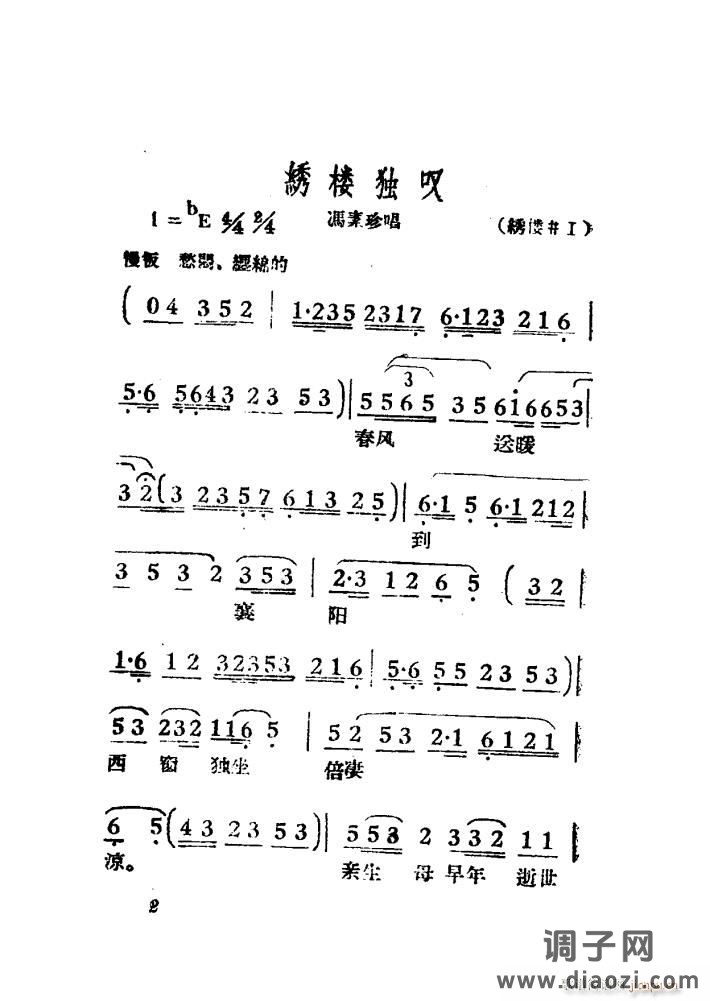 绣楼独叹
1=bE 4/4 2/4 馮素珍唱 (綉楼井I)
慢板 愁悶、纒綿的
(04 352 | 1·235 2317 6·123 216 |
5·6 5643 23 53)| 5565 35 616653 |
3
春风 送暖
32(3 2357 613 25)| 6·1 5 6·1 212 |
到
353 2 353 | 2·3 12 6 5 (32 |
襄 阳
1·6 12 32353 216 | 5·6 55 23 53)|
53 232 116 5 | 52 53 2·1 6121 |
西 窗 独坐 倍凄
6 5(43 23 53)| 553 2 332 11 |
凉。 亲生 母早年 逝世
2
调子网
www.diaozi.com